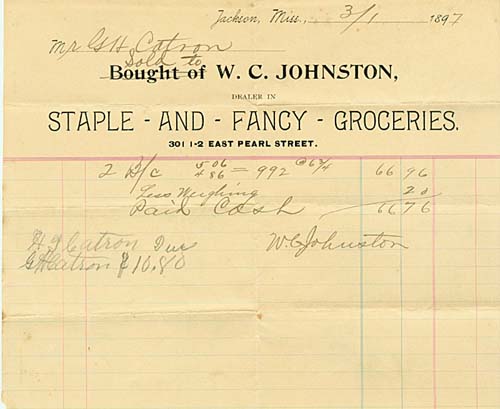 Jackson, Miss., 3/1 1897
Mr G H Catron
Sold to
Bought of W. C. JOHNSTON,
DEALER IN
STAPLE - AND - FANCY - GROCERIES.
301 1-2 EAST PEARL STREET.
2 B/C 506 486 = 992 @ 6 3/4 66 96
Less Weighing 20
Paid Cash 66 76
H J Catron Due W C Johnston
G H Catron $ 10.80